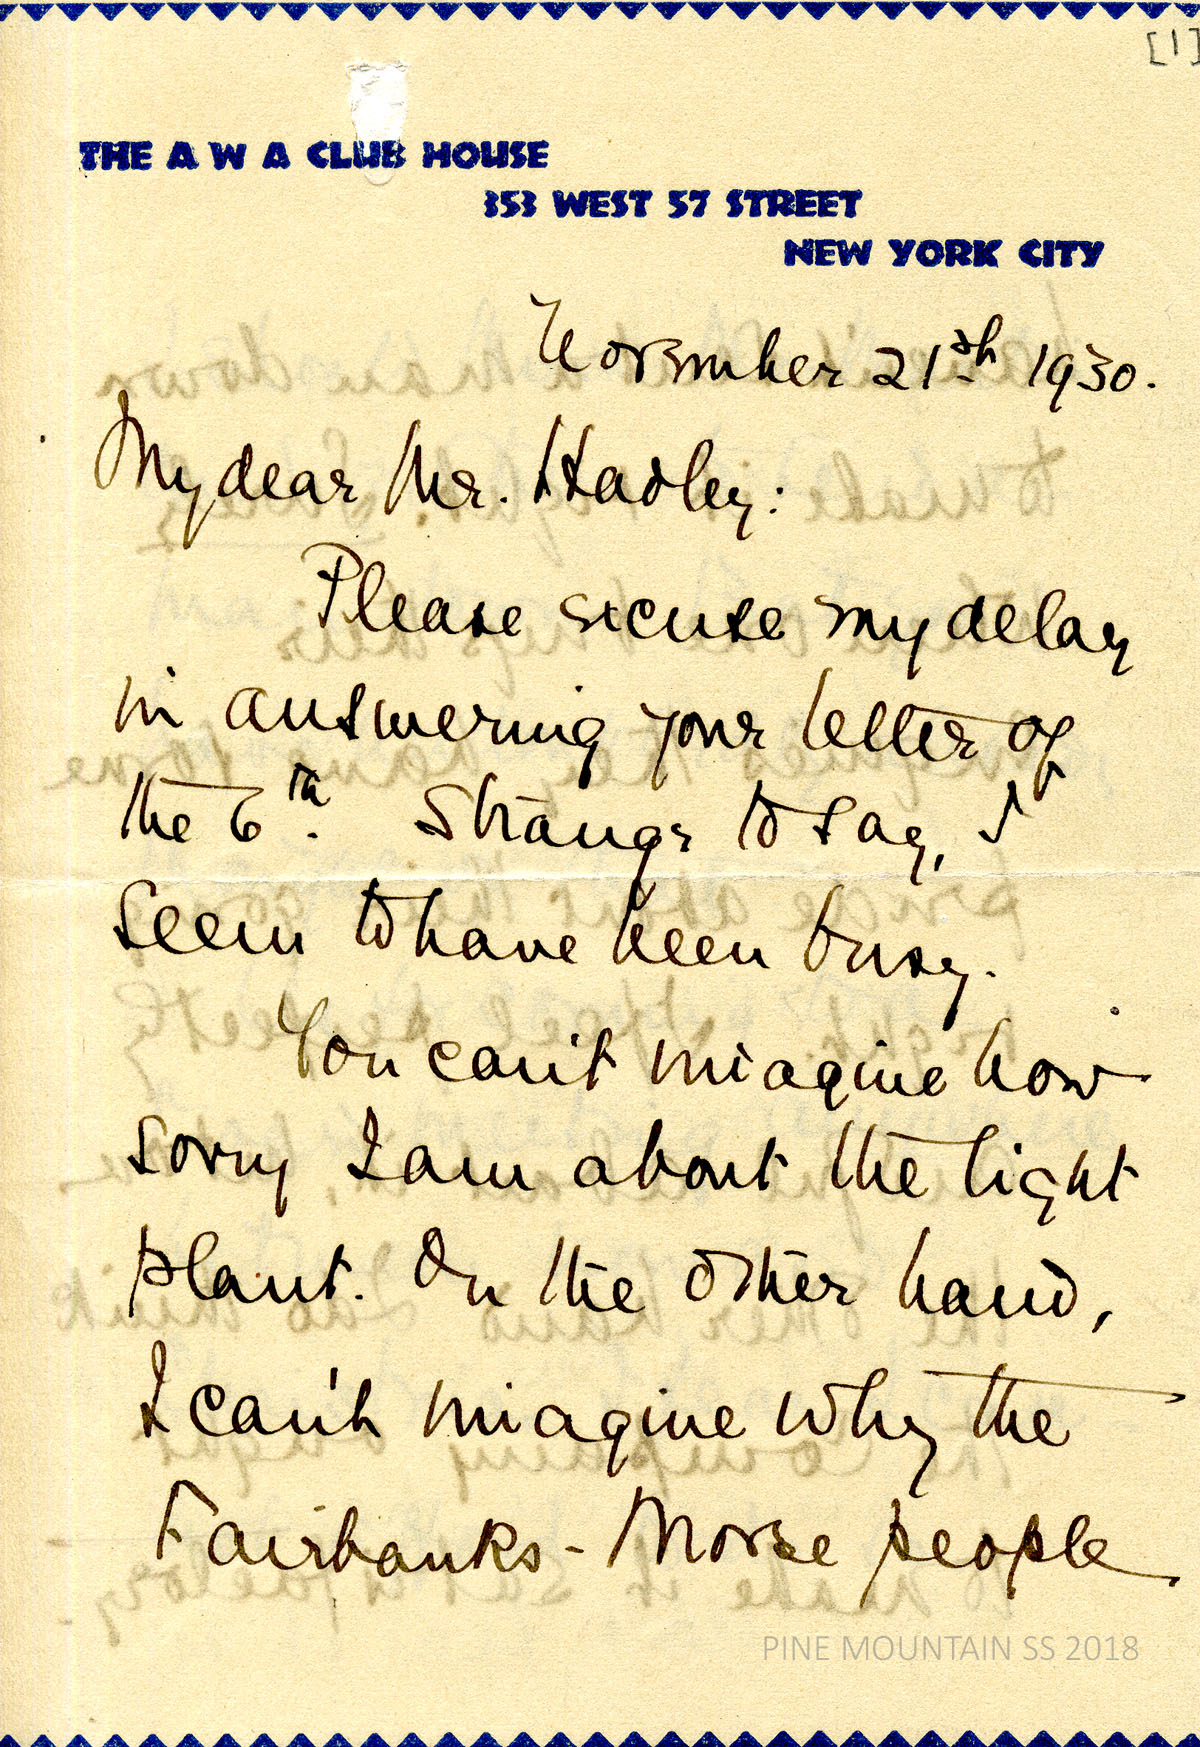 [1]
THE A W A CLUB HOUSE
353 WEST 57 STREET
NEW YORK CITY
November 21th 1930.
My dear Mr. Hadley:
Please excuse my delay
in answering your letter of
the 6th. Strange to say, I
seem to have been busy.
You can't imagine how
sorry I am about the light
plant. On the other hand,
I can't imagine why the
Fairbanks-Morse people
PINE MOUNTAIN SS 2018